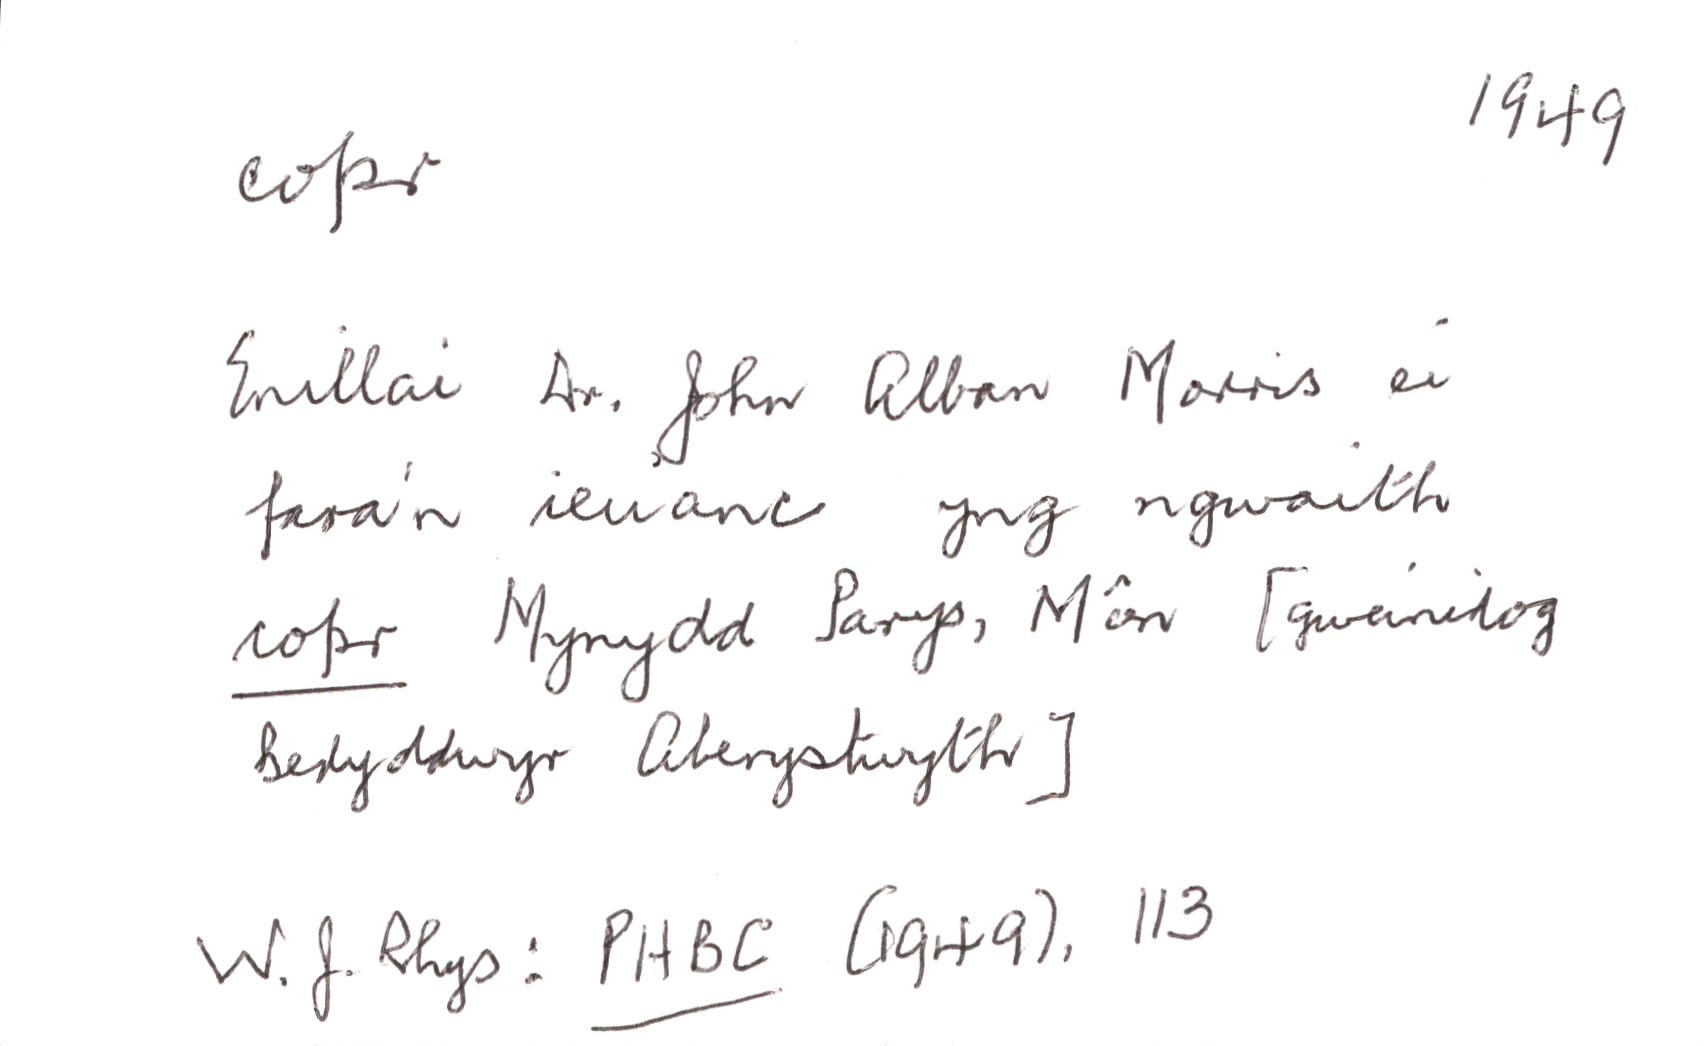 1949
copr
Enillai Dr. John Alban Morris ei
fara'n ieuanc yng ngwaith
copr Mynydd Parys, Môn [gweinidog
Bedyddwyr Aberystwyth]
W. J. Rhys: PHBC (1949), 113